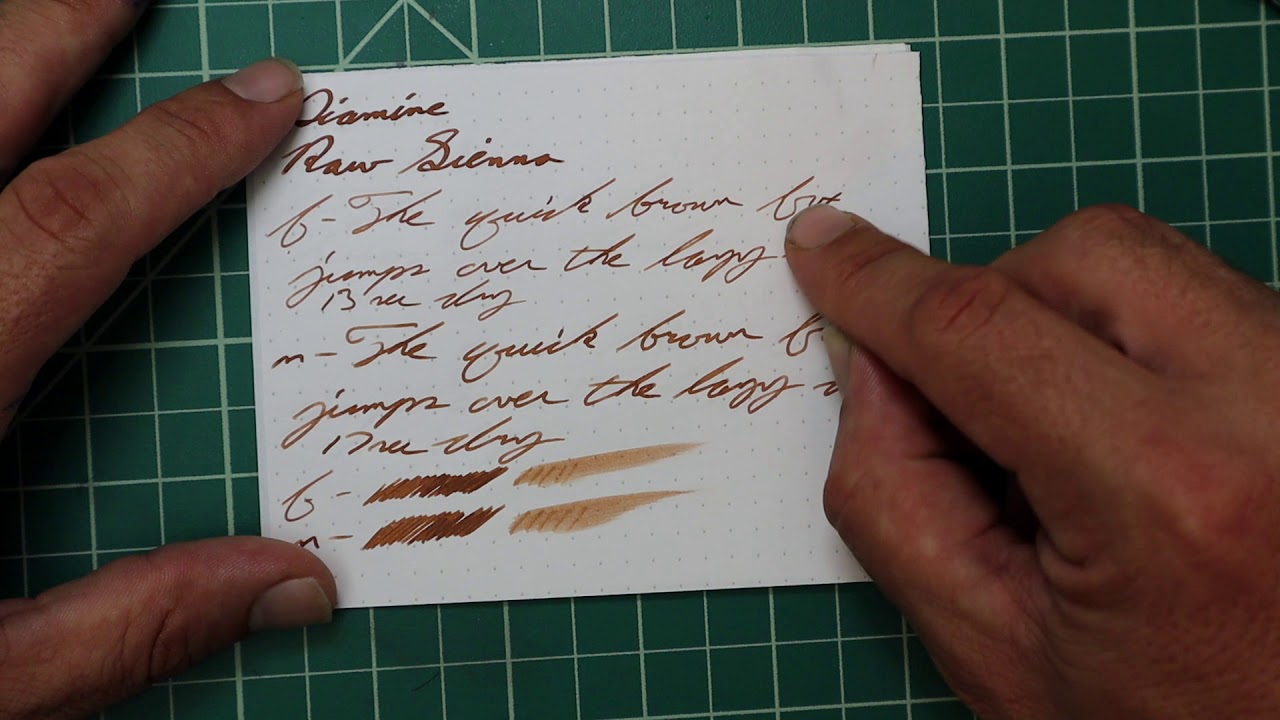 Diamine
Raw Sienna
f - The quick brown fox
jumps over the lazy
13 sec dry
m - The quick brown f
jumps over the lazy d
17 sec dry
f -
m -